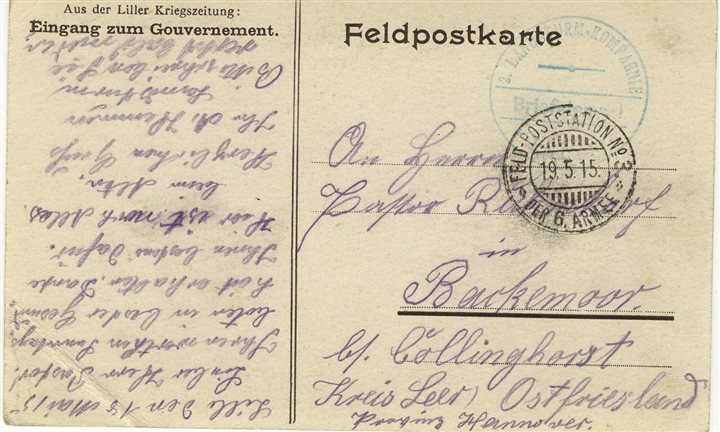 Aus der Liller Kriegszeitung:
Eingang zum Gouvernement.
Feldpostkarte
2. LANDSTURM-KOMPAGNIE
FELD-POSTSTATION No 3
19.5.15.
DER 6. ARMEE
An Herrn
Pastor
in
Backemoor.
b/ Collinghorst
Kreis Leer) Ostfriesland
Hannover.
Lille den 15 Mai 15
Lieber Herr Pastor!
Ihren werthen Sonntags
boten in bester Gesund
heit erhalten, Danke
Ihnen bestens dafür.
Hier ist noch Alles
beim Alten.
Herzlichen Gruß
Ihr A.
Landsturm
Bitte schreiben Sie